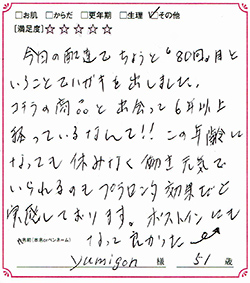 □お肌 □からだ □更年期 □生理 ☑その他
[満足度]☆☆☆☆☆
今日の配達でちょうど“80回”目と
いうことでハガキを出しました。
コチラの商品と出会って6年以上
経っているなんて!!この年齢に
なっても休みなく働き元気で
いられるのもプラセンタ効果だと
実感しております。ポストインにも
なって良かった
お名前(本名orペンネーム)
yumigon 様 51 歳